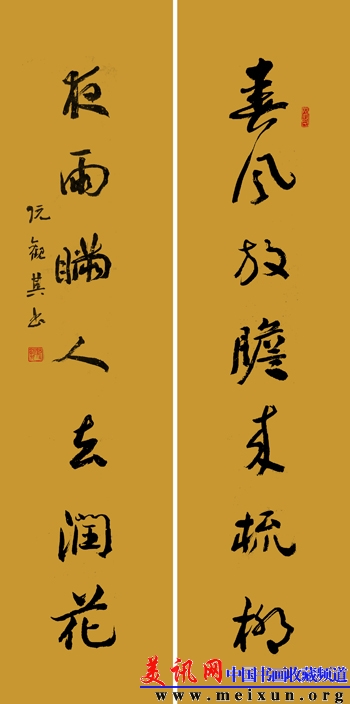 春风放膽来梳柳
夜雨瞒人去润花
阮观其书
美讯网 中国书画收藏频道
www.meixun.org